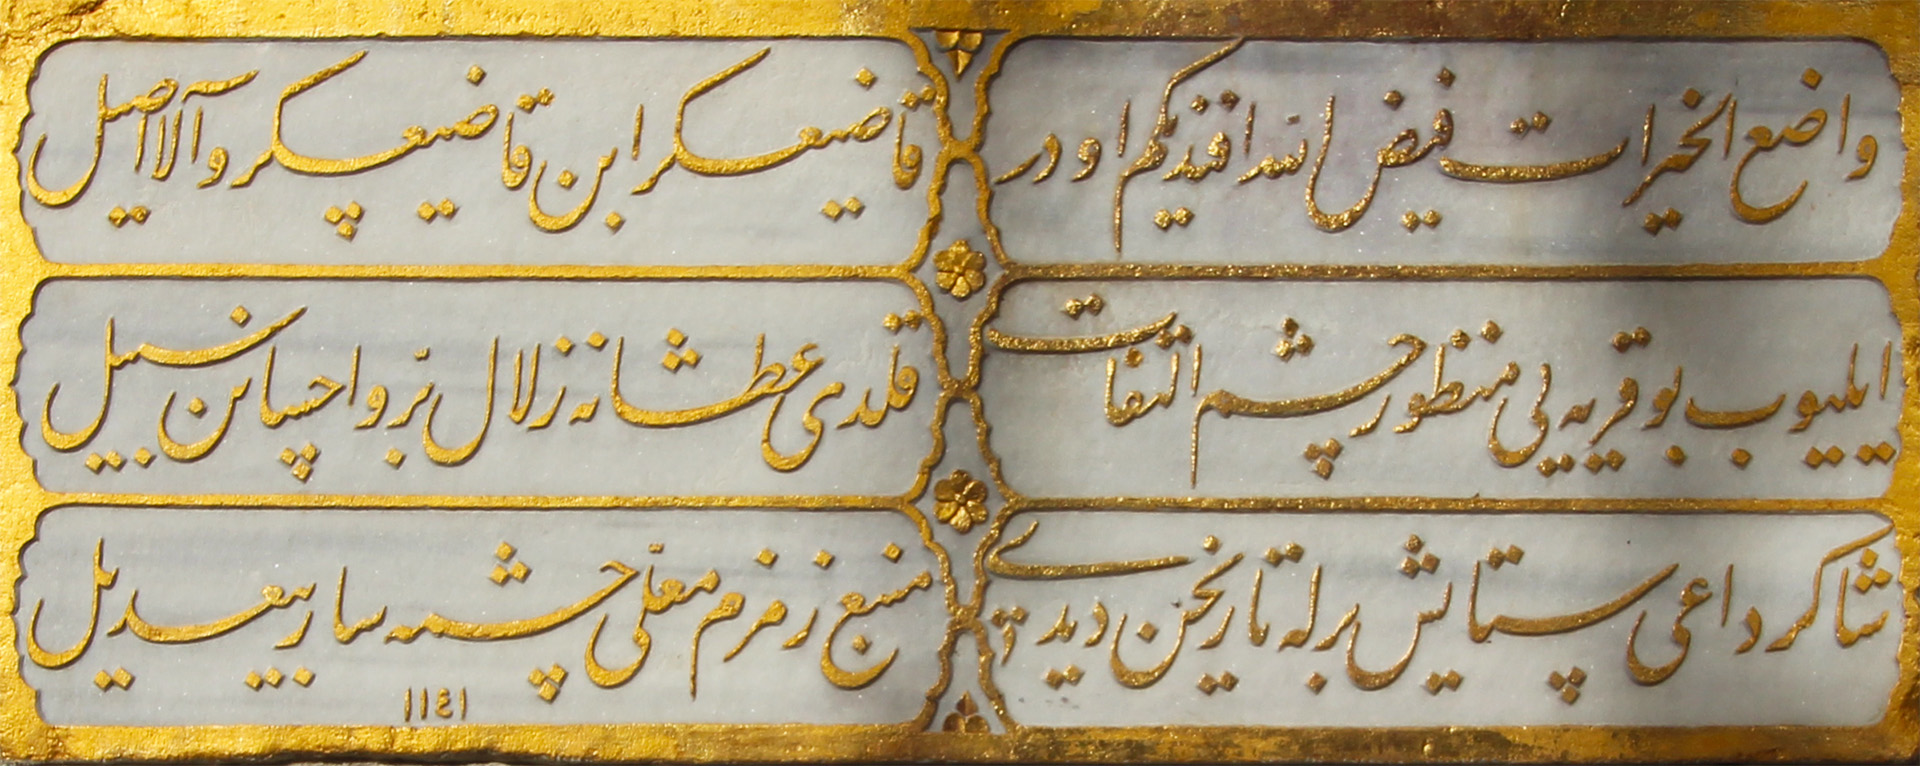 واضع الخيرات فيض الله افنديكم اودر
قاضيعسكر ابن قاضيعسكر وآلا اصيل
ايليوب بو قريه يى منظور چشم التفات
قلدى عطشانه زلال برّ و احسانن سبيل
شاكر داعى ستايش برله تاريخن ديدى
منبع زمزم معلّى چشمه سار بيعديل
١١٤١